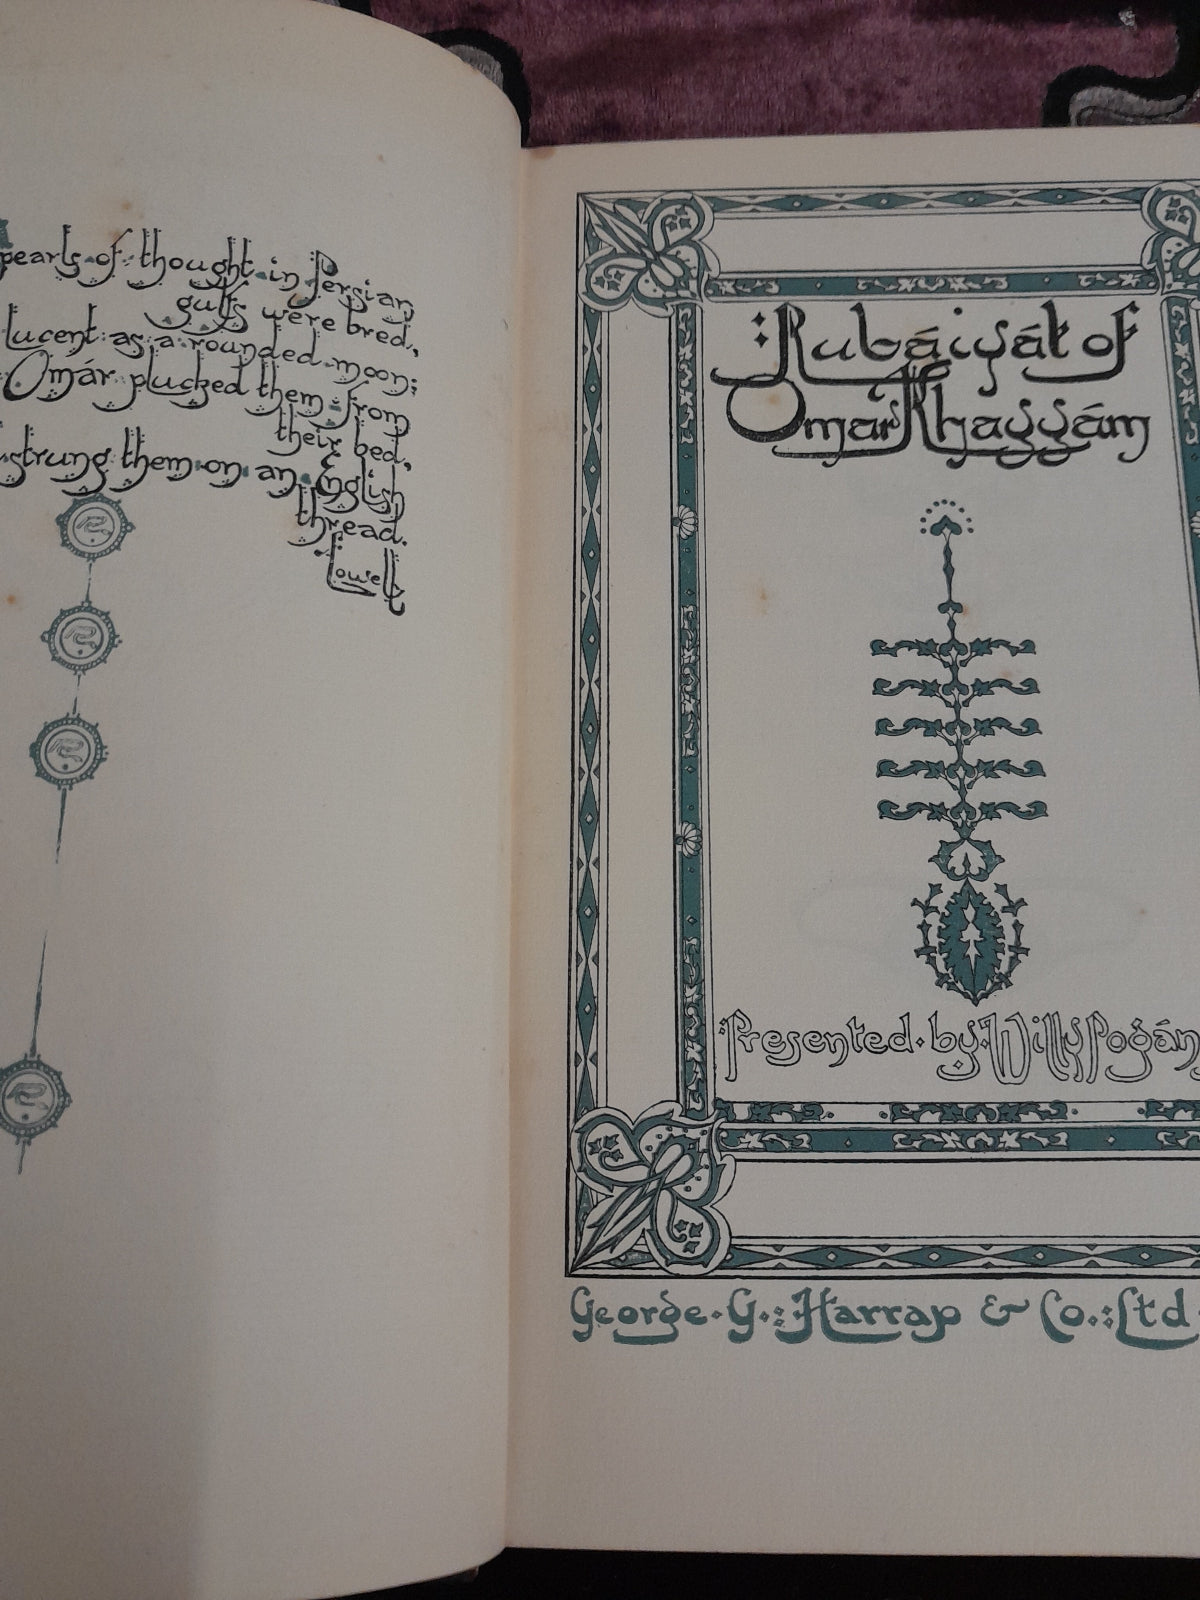 pearls of thought in Persian
gulfs were bred,
lucent as a rounded moon;
Omár plucked them from
their bed,
strung them on an English
thread.
Lowell
Rubáiyát of
Omar Khayyám
Presented by Willy Pogány
George G. Harrap & Co. Ltd